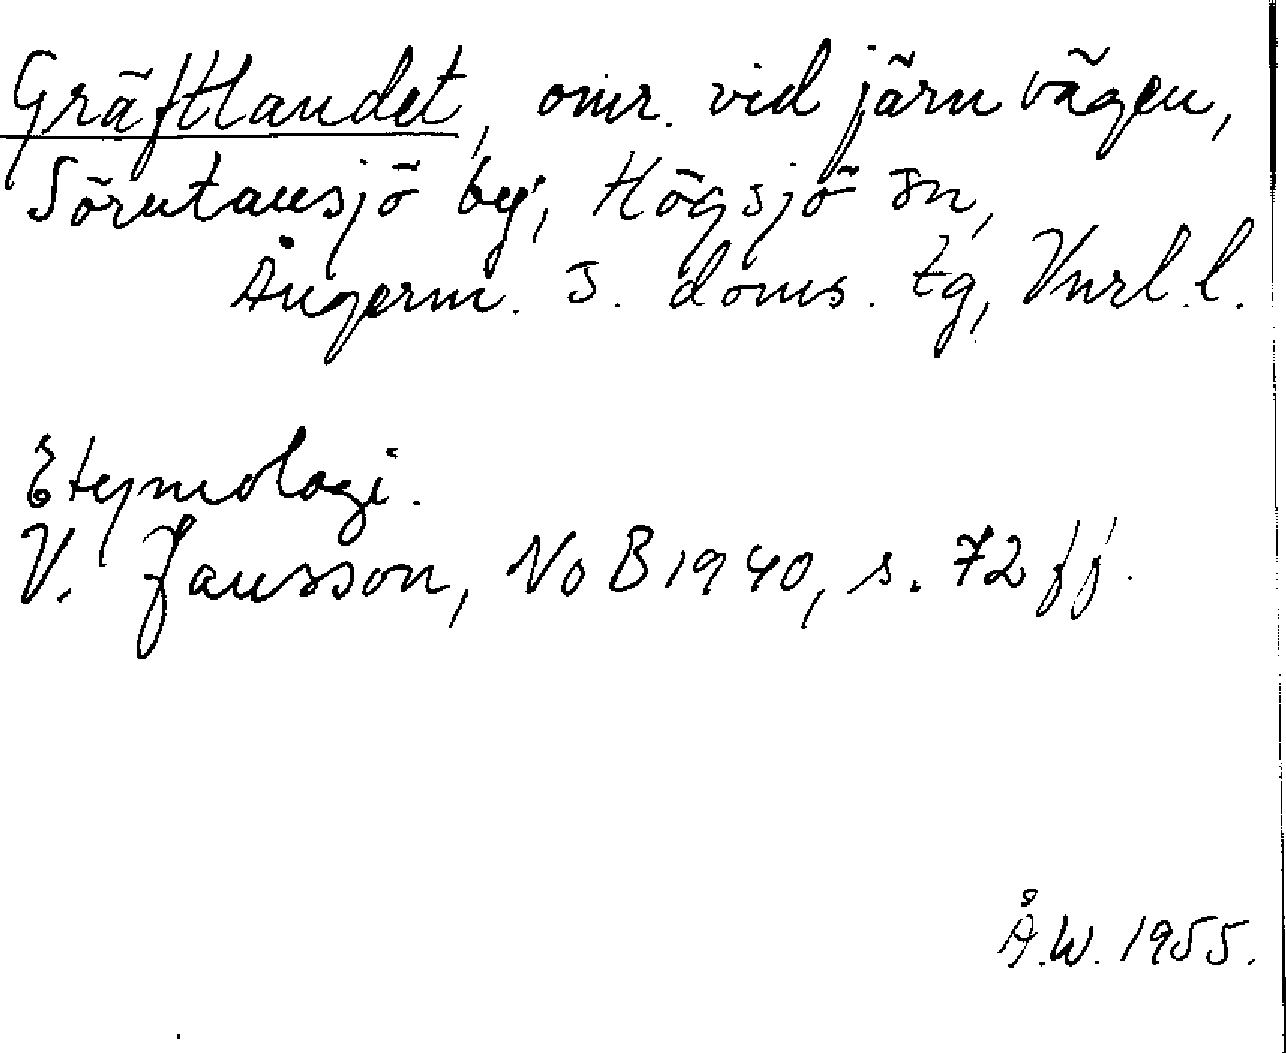 Gräftlandet, omr. vid järnvägen,
Sörutansjö by, Högsjö sn,
Ångerm. s. doms. tg, Vnrl. l.
Etymologi.
V. Jansson, NoB 1940, s. 72 ff.
Å.W. 1955.